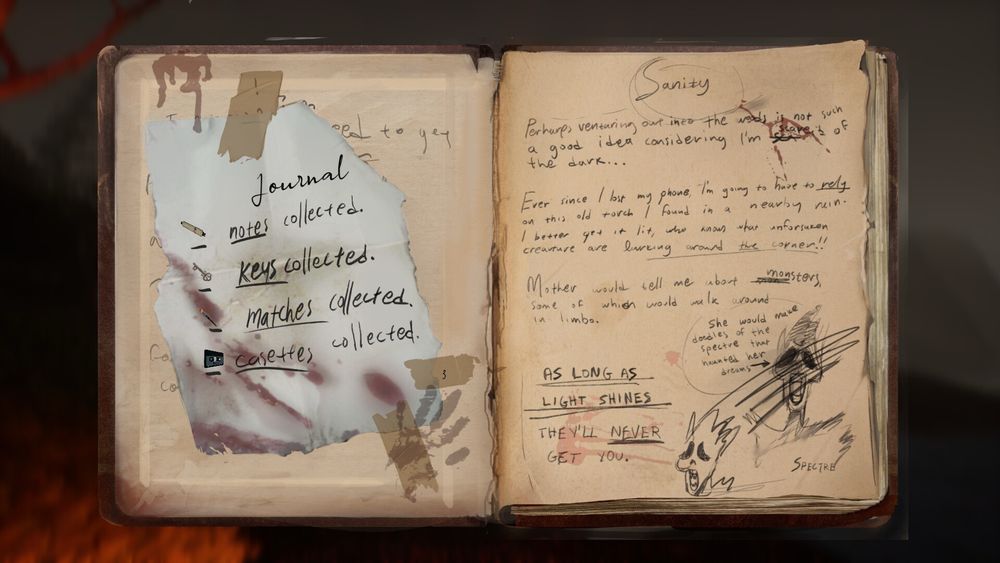 need to
Journal
notes collected.
Keys collected.
matches collected.
casettes collected.
3
Sanity
Perhaps venturing out into the woods is not such
a good idea considering I'm scared of
the dark...
Ever since I lost my phone, I'm going to have to rely
on this old torch I found in a nearby ruin.
I better get it lit, who knows what unforsaken
creature are lurking around the corner!!
Mother would tell me about monsters,
some of which would walk around
in limbo.
She would make
doodles of the
spectre that
haunted her
dreams
AS LONG AS
LIGHT SHINES
THEY'LL NEVER
GET YOU.
SPECTRE